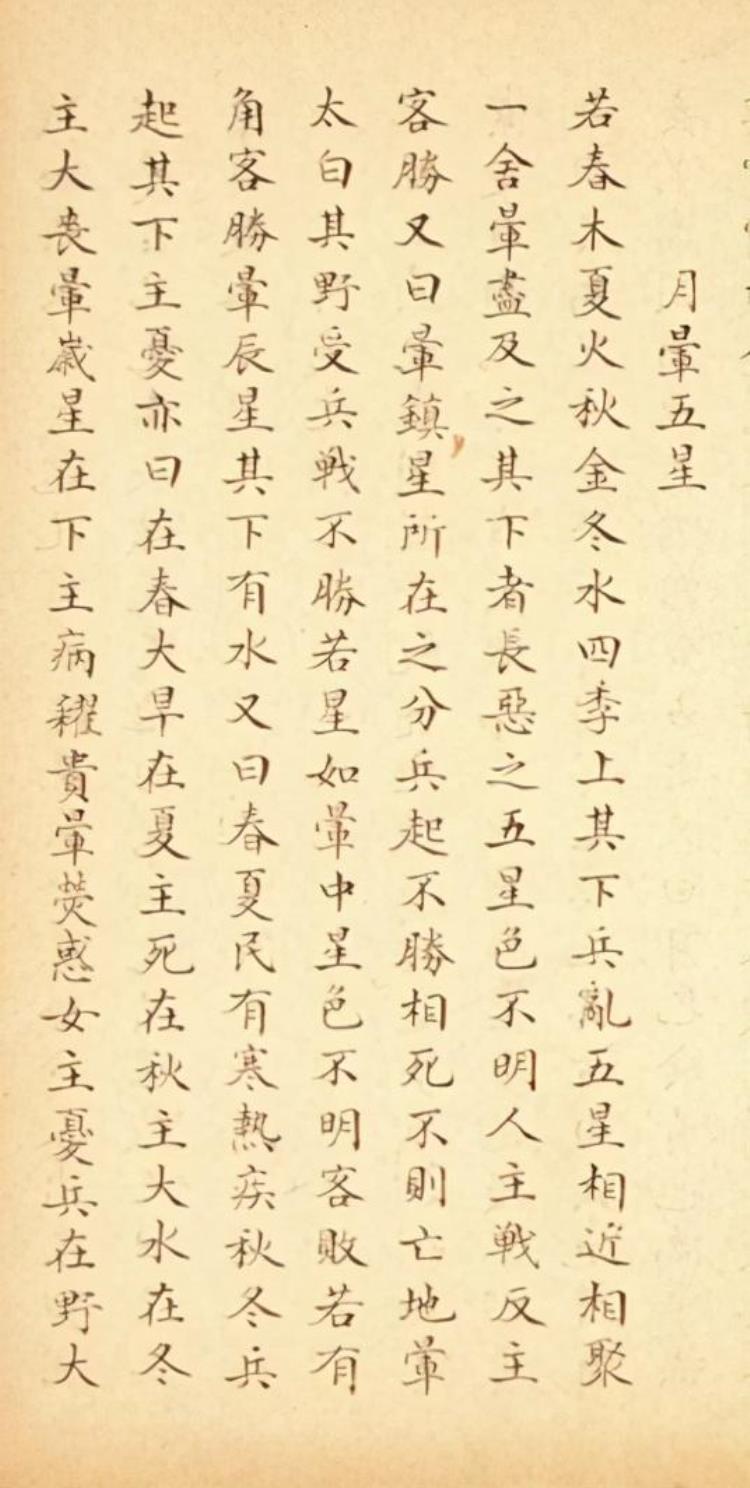 月暈五星
若春木夏火秋金冬水四季上其下兵亂五星相近相聚
一舍暈盡及之其下者長惡之五星色不明人主戦反主
客勝又曰暈鎮星所在之分兵起不勝相死不則亡地暈
太白其野受兵戦不勝若星如暈中星色不明客敗若有
角客勝暈辰星其下有水又曰春夏民有寒熱疾秋冬兵
起其下主憂亦曰在春大旱在夏主死在秋主大水在冬
主大丧暈歲星在下主病糴貴暈熒惑女主憂兵在野大